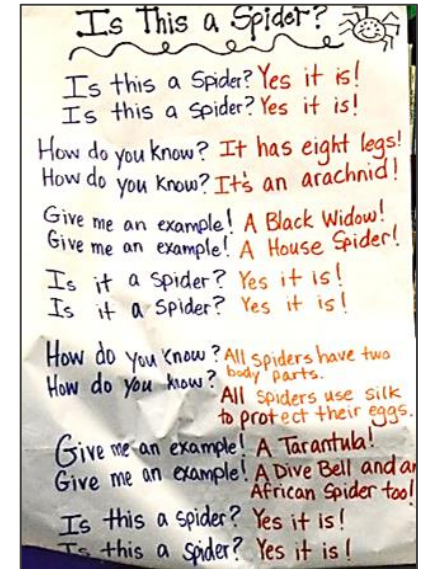 Is This a Spider?
Is this a Spider? Yes it is!
Is this a spider? Yes it is!
How do you know? It has eight legs!
How do you know? It's an arachnid!
Give me an example! A Black Widow!
Give me an example! A House Spider!
Is it a spider? Yes it is!
Is it a spider? Yes it is!
How do you know? All spiders have two
body parts.
How do you know?
All spiders use silk
to protect their eggs.
Give me an example! A Tarantula!
Give me an example! A Dive Bell and an
African Spider too!
Is this a spider? Yes it is!
Is this a spider? Yes it is!